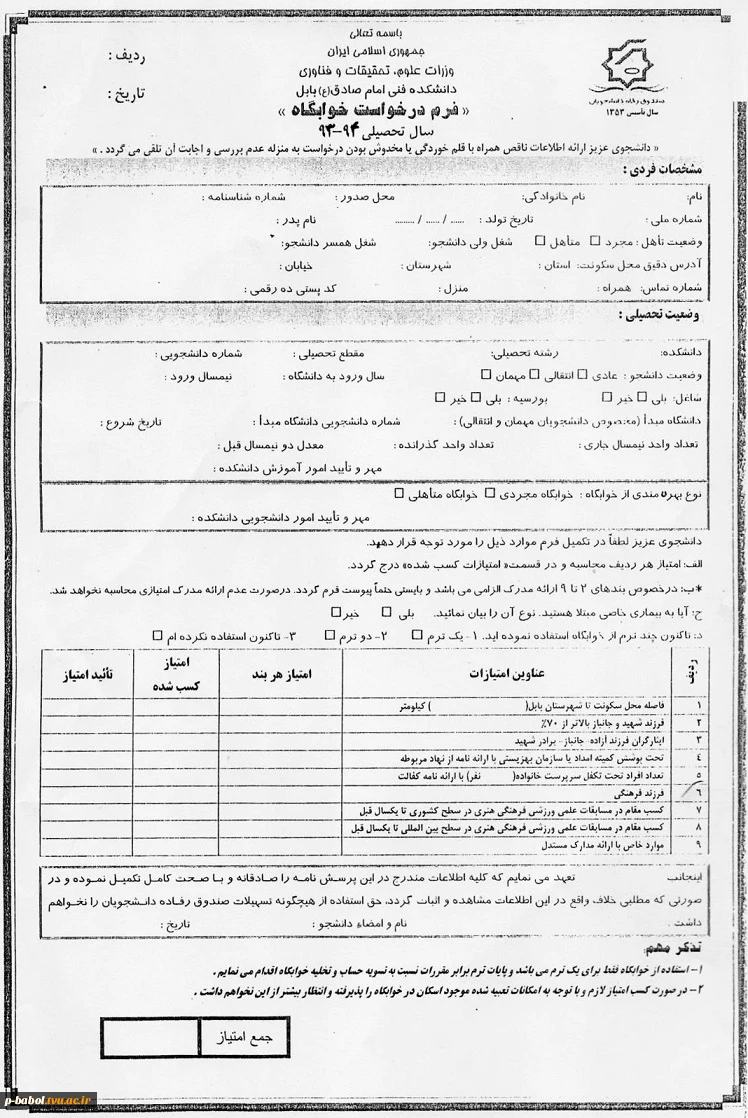 باسمه تعالی
جمهوری اسلامی ایران
وزرات علوم، تحقیقات و فناوری
دانشکده فنی امام صادق(ع) بابل
« فرم درخواست خوابگاه »
سال تحصیلی ۹۴-۹۳
ردیف :
تاریخ :
صندوق رفاه دانشجویان
سال تأسیس ۱۳۵۳
« دانشجوی عزیز ارائه اطلاعات ناقص همراه با قلم خوردگی یا مخدوش بودن درخواست به منزله عدم بررسی و اجابت آن تلقی می گردد . »
مشخصات فردی :
نام: نام خانوادگی: محل صدور : شماره شناسنامه :
شماره ملی : تاریخ تولد : ...... / ...... / ......... نام پدر :
وضعیت تأهل : مجرد □ متأهل □ شغل ولی دانشجو: شغل همسر دانشجو:
آدرس دقیق محل سکونت: استان : شهرستان : خیابان :
شماره تماس: همراه : منزل : کد پستی ده رقمی :
وضعیت تحصیلی :
دانشکده: رشته تحصیلی: مقطع تحصیلی : شماره دانشجویی :
وضعیت دانشجو : عادی □ انتقالی □ مهمان □ سال ورود به دانشگاه : نیمسال ورود :
شاغل: بلی □ خیر □ بورسیه : بلی □ خیر □
دانشگاه مبدأ (مخصوص دانشجویان مهمان و انتقالی) : شماره دانشجویی دانشگاه مبدأ : تاریخ شروع :
تعداد واحد نیمسال جاری : تعداد واحد گذرانده : معدل دو نیمسال قبل :
مهر و تأیید امور آموزش دانشکده :
نوع بهره مندی از خوابگاه : خوابگاه مجردی □ خوابگاه متأهلی □
مهر و تأیید امور دانشجویی دانشکده :
دانشجوی عزیز لطفاً در تکمیل فرم موارد ذیل را مورد توجه قرار دهید.
الف: امتیاز هر ردیف محاسبه و در قسمت« امتیازات کسب شده» درج گردد.
*ب: درخصوص بندهای ۲ تا ۹ ارائه مدرک الزامی می باشد و بایستی حتماً پیوست فرم گردد. درصورت عدم ارائه مدرک امتیازی محاسبه نخواهد شد.
ج: آیا به بیماری خاصی مبتلا هستید. نوع آن را بیان نمائید. بلی □ خیر□
د: تاکنون چند ترم از خوابگاه استفاده نموده اید. ۱- یک ترم □ ۲- دو ترم □ ۳- تاکنون استفاده نکرده ام □
ردیف عناوین امتیازات امتیاز هر بند امتیاز کسب شده تأئید امتیاز
۱ فاصله محل سکونت تا شهرستان بابل( ) کیلومتر
۲ فرزند شهید و جانباز بالاتر از ۷۰٪
۳ ایثارگران فرزند آزاده- جانباز- برادر شهید
۴ تحت پوشش کمیته امداد یا سازمان بهزیستی با ارائه نامه از نهاد مربوطه
۵ تعداد افراد تحت تکفل سرپرست خانواده( نفر) با ارائه نامه کفالت
۶ فرزند فرهنگی
۷ کسب مقام در مسابقات علمی ورزشی فرهنگی هنری در سطح کشوری تا یکسال قبل
۸ کسب مقام در مسابقات علمی ورزشی فرهنگی هنری در سطح بین المللی تا یکسال قبل
۹ موارد خاص با ارائه مدارک مستدل
اینجانب تعهد می نمایم که کلیه اطلاعات مندرج در این پرسش نامه را صادقانه و با صحت کامل تکمیل نموده و در
صورتی که مطلبی خلاف واقع در این اطلاعات مشاهده و اثبات گردد، حق استفاده از هیچگونه تسهیلات صندوق رفاه دانشجویان را نخواهم
داشت . نام و امضاء دانشجو : تاریخ :
تذکر مهم:
۱- استفاده از خوابگاه فقط برای یک ترم می باشد و پایات ترم برابر مقررات نسبت به تسویه حساب و تخلیه خوابگاه اقدام می نمایم .
۲- در صورت کسب امتیاز لازم و با توجه به امکانات تعبیه شده موجود اسکان در خوابگاه را پذیرفته و انتظار بیشتر از این نخواهم داشت .
جمع امتیاز
p-babol.tvu.ac.ir